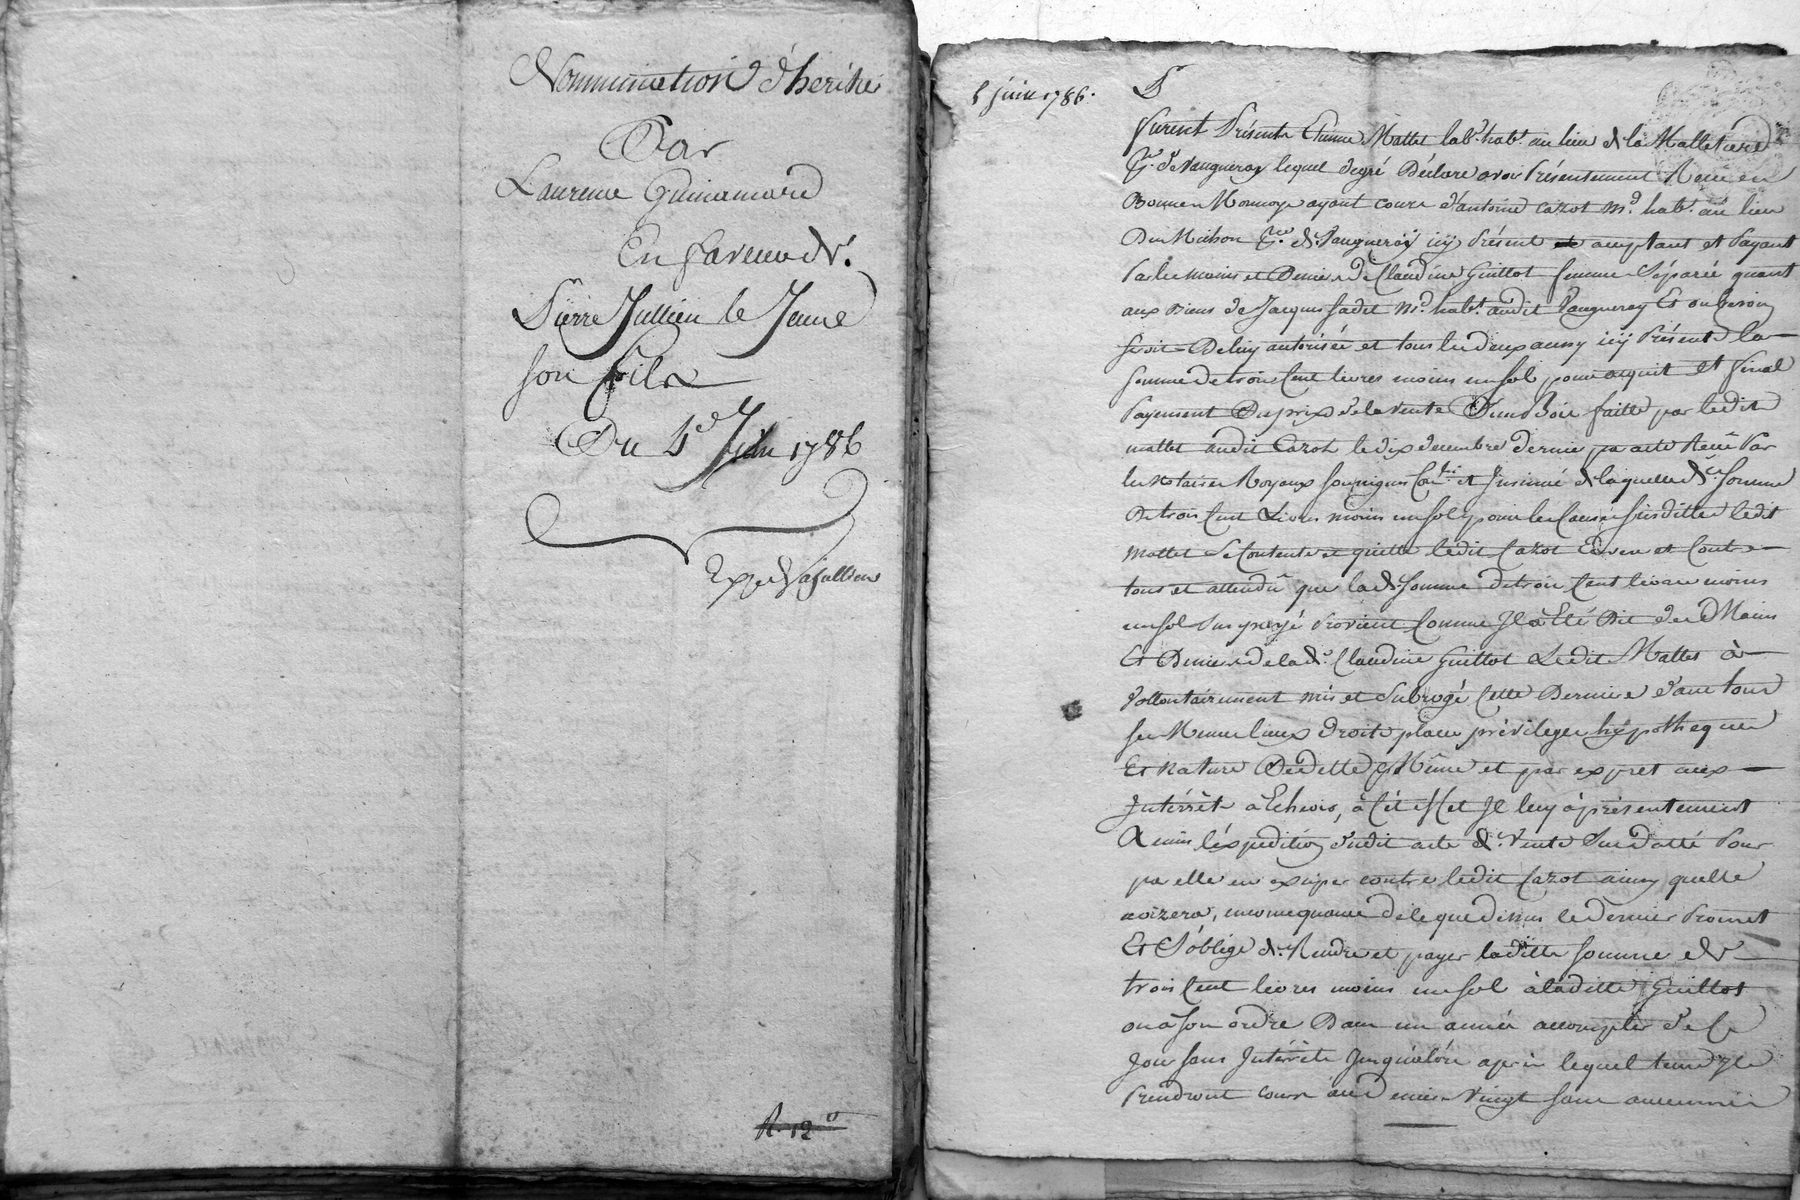 Nommination d'heritier
Par
Laurence Guinamard
En faveur de
Pierre Jullien le Jeune
son fils
Du 4e Juin 1786
Exped
R. 12
5 juin 1786.
Furent Présents Etienne Mattet lab.r hab.t au lieu de la Malletiere
P.sse de Vaugneray lequel degré Déclare avoir Présentement Receu en
Bonne Monnoye ayant cours d'antoine Cazot M.d hab.t au lieu
Du Michon P.sse de Vaugneray icy Présent acceptant et Payant
Par les mains et Deniers de Claudine Guillot femme Séparée quant
aux Biens de Jacques M.d hab.t audit Vaugneray Et ou besoin
seroit De luy autorisée et tous les deux aussy icy Présents la
somme de trois Cent livres moins un sol pour acquit et final
Payement Du prix de la vente D'un Bois faitte par ledit
mattet audit Cazot le dix decembre dernier par acte Receu Par
les Notaires Royaux soussignés et Insinué de laquelle d.e somme
De trois Cent Livres moins un sol pour les Causes susdittes ledit
mattet se Contente et quitte ledit Cazot Envers et Contre
tous et attendû que lad. somme de trois Cent livres moins
un sol Sus payé Provient Comme Il a Eté Dit des Mains
Et Deniers de lad.e Claudine Guillot Ledit Mattet à
vollontairement mis et Subrogé Cette Derniere dans tous
ses Memes lieux droits place privileges hypotheques
Et Nature De dette Même et par expret aux
Intérrêts à Echeoir, à Cet effet Il luy à présentement
Remis l'éxpedition dudit acte de Vente Sus datté Pour
par elle en exciper contre ledit Cazot ainsy quelle
avizera, en consequence de ce que dessus le dernier Promet
Et S'oblige de Rendre et payer laditte somme de
trois Cent livres moins un sol à laditte Guillot
ou à son ordre Dans un année accomplie de Ce
Jour sans Intérrêts Jusqu'alors apres lequel tems Ils
Prendront cours au Denier Vingt sans